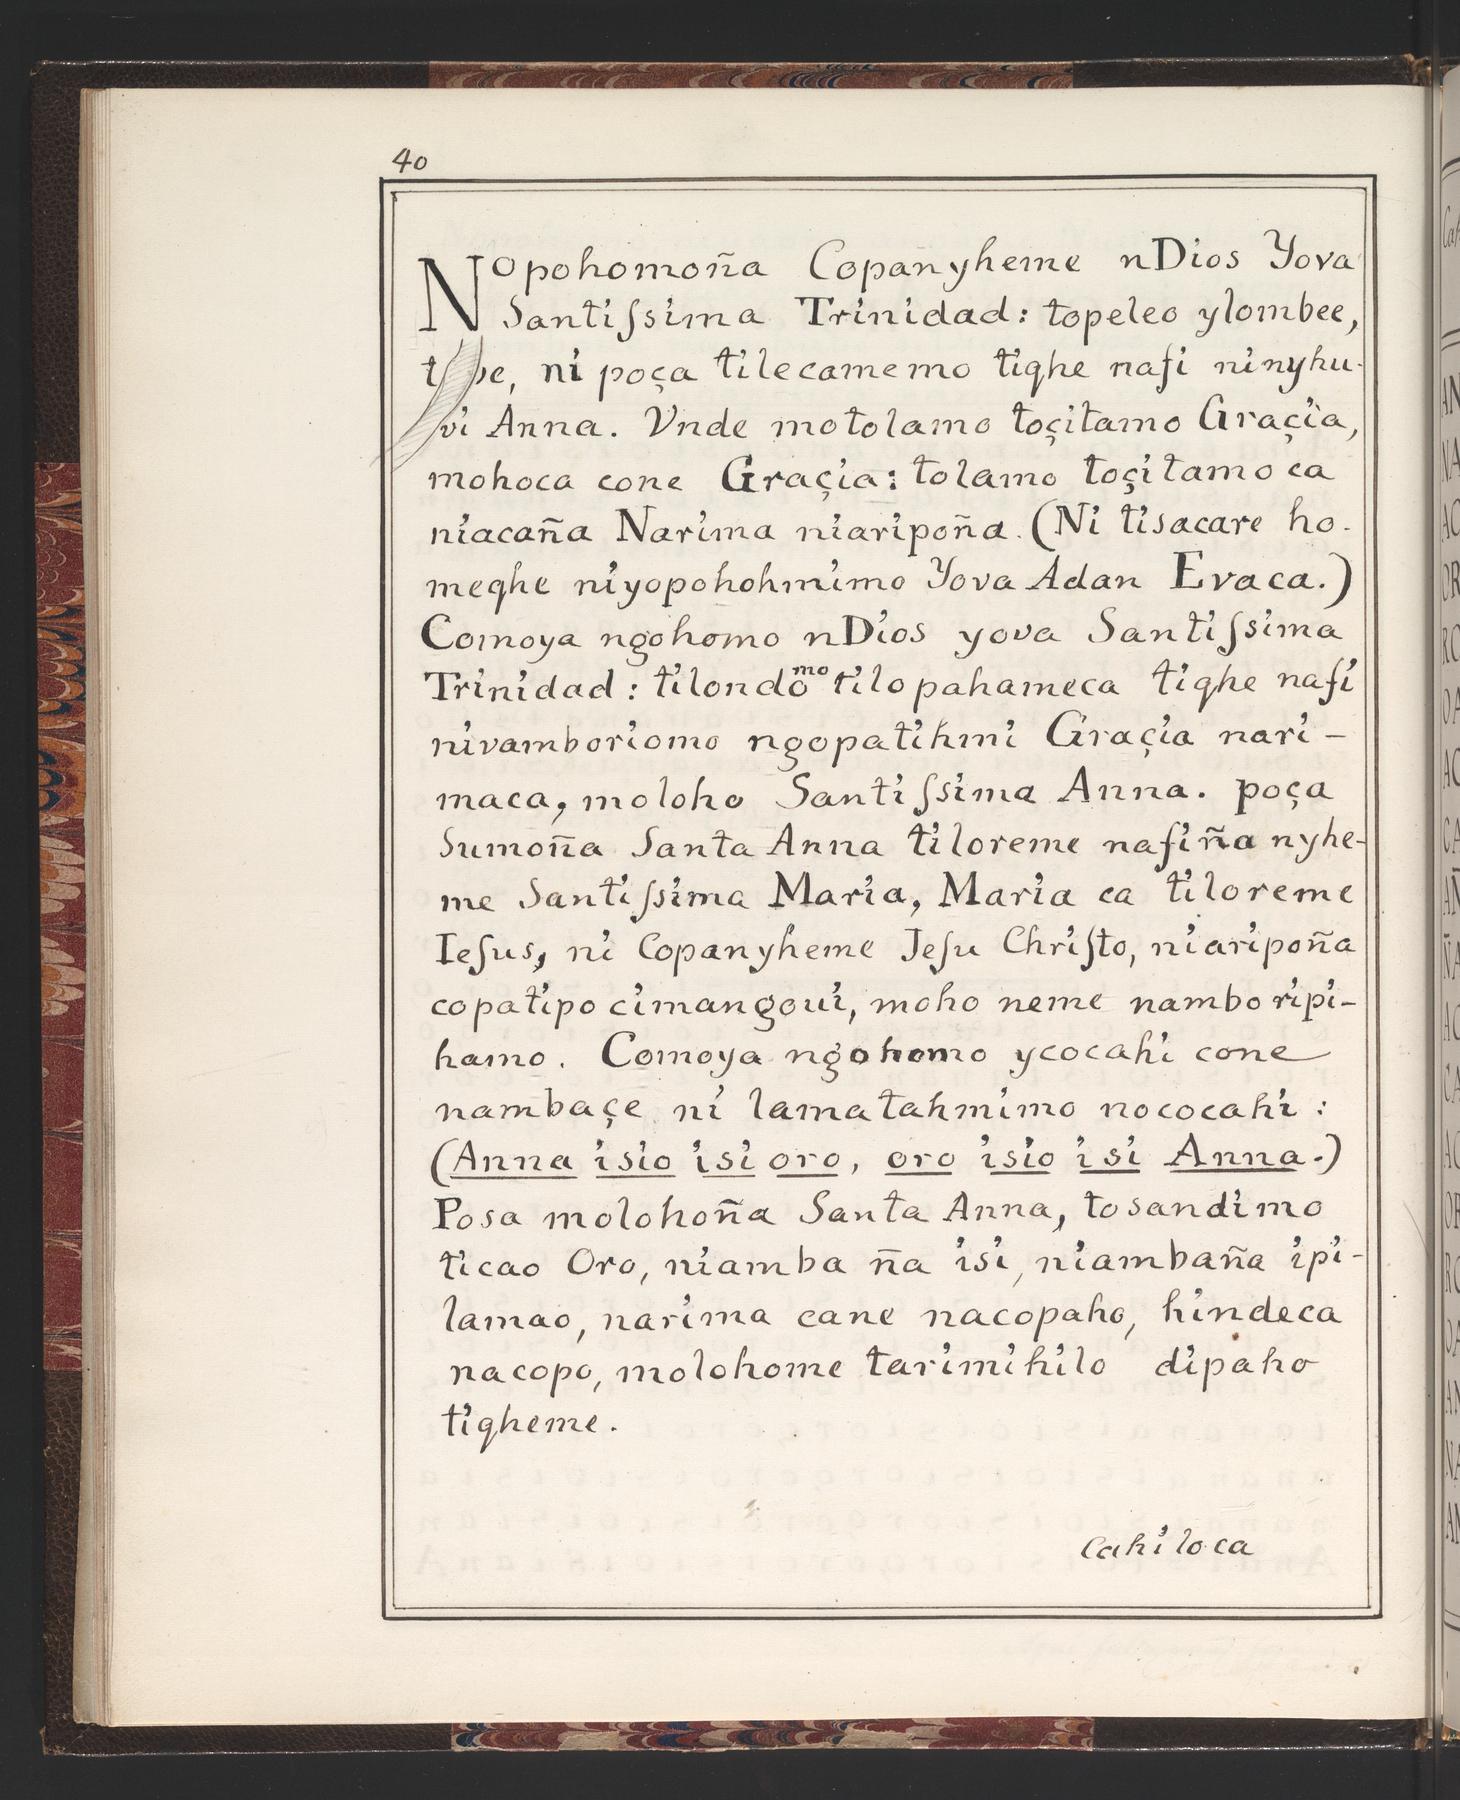 40
Nopohomoña Copanyheme nDios Yova
Santiſsima Trinidad: topeleo ylombee,
ni poça tilecamemo tighe nafi ninyhu-
vi Anna. Vnde motolamo toçitamo Graçia,
mohoca cone Graçia: tolamo toçitamo ca
niacaña Narima niaripoña. (Ni tisacare ho-
meghe niyopohohmimo Yova Adan Evaca.)
Comoya ngohomo nDios yova Santiſsima
Trinidad: tilondo^mo tilopahameca tighe nafi
nivamboriomo ngopatihmi Graçia nari-
maca, moloho Santiſsima Anna. poça
Sumoña Santa Anna tiloreme nafiña nyhe-
me Santiſsima Maria, Maria ca tiloreme
Ieſus, ni Copanyheme Jeſu Chriſto, niaripoña
copatipo cimangoui, moho neme namboripi-
hamo. Comoya ngohomo ycocahi cone
nambaçe ni lamatahmimo nococahi:
(Anna isio isi oro, oro isio isi Anna.)
Posa molohoña Santa Anna, tosandimo
ticao Oro, niamba ña isi, niambaña ipi-
lamao, narima cane nacopaho, hindeca
nacopo, molohome tarimihilo dipaho
tigheme.
Cahiloca